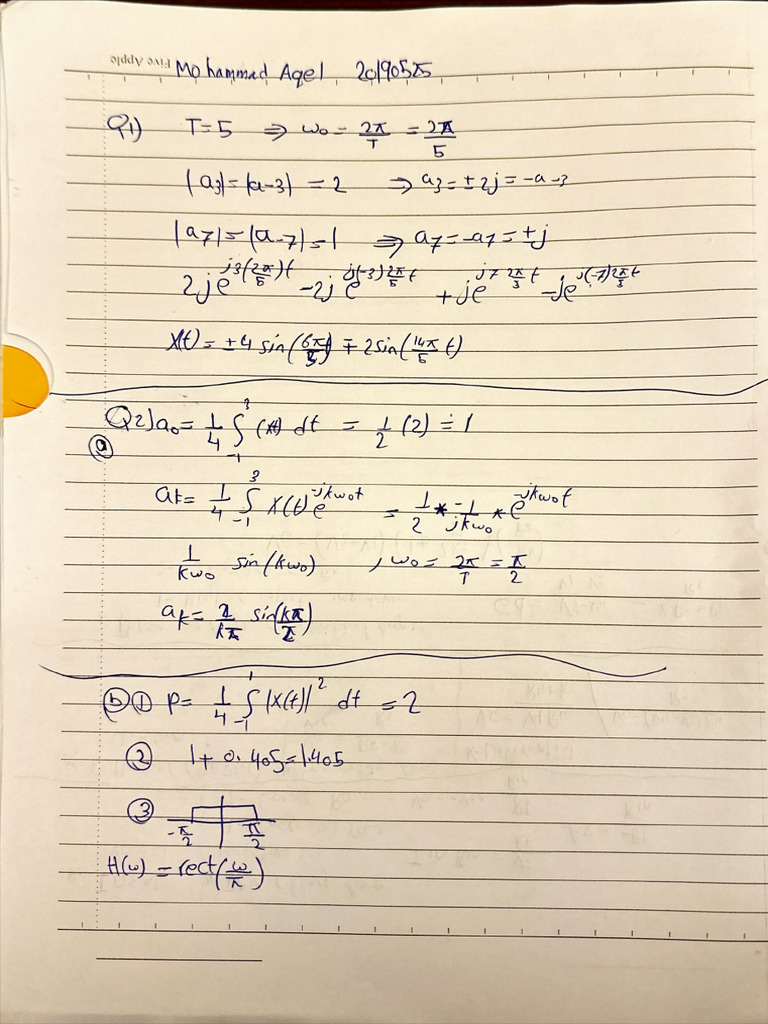 Five Apple
Mohammad Aqel 20190525
Q1) T=5 ⇒ ω0 = 2π/T = 2π/5
|a3|=|a-3| = 2 ⇒ a3 = ±2j = -a-3
|a7|=|a-7|=1 ⇒ a7=-a7=±j
2je^j3(2π/5)t -2je^j(-3)2π/5 t +je^j7 2π/3 t -je^j(-7)2π/3 t
X(t) = ±4 sin(6π/5) ∓ 2sin(14π/5 t)
Q2) a0= 1/4 ∫ dt = 1/2 (2) = 1
ⓐ
ak= 1/4 ∫_-1^3 X(t)e^-jkω0t = 1/2 * -1/jkω0 * e^-jkω0t
1/kω0 sin(kω0) , ω0 = 2π/T = π/2
ak= 2/kπ sin(kπ/2)
ⓑ ① P= 1/4 ∫_-1^1 |X(t)|^2 dt = 2
② 1+ 0.405=1.405
③
-π/2 π/2
H(ω) = rect(ω/π)